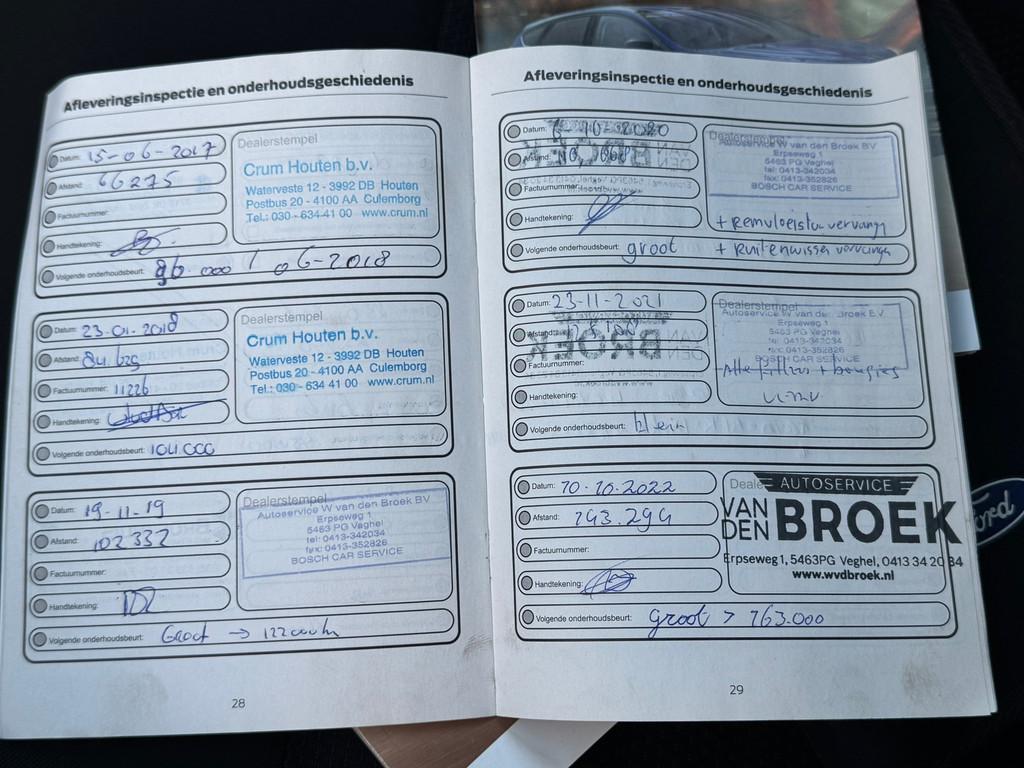 Afleveringsinspectie en onderhoudsgeschiedenis
Datum: 15-06-2017
Afstand: 66275
Factuurnummer:
Handtekening:
Volgende onderhoudsbeurt: 96.000 / 06-2018
Dealerstempel
Crum Houten b.v.
Waterveste 12 - 3992 DB Houten
Postbus 20 - 4100 AA Culemborg
Tel.: 030 - 634 41 00 www.crum.nl
Datum: 23-01-2018
Afstand:
Factuurnummer: 11226
Handtekening:
Volgende onderhoudsbeurt: 104.000
Dealerstempel
Crum Houten b.v.
Waterveste 12 - 3992 DB Houten
Postbus 20 - 4100 AA Culemborg
Tel.: 030 - 634 41 00 www.crum.nl
Datum: 19-11-19
Afstand: 102332
Factuurnummer:
Handtekening:
Volgende onderhoudsbeurt: Groot → 122000km
Dealerstempel
Autoservice W van den Broek BV
Erpseweg 1
5463 PG Veghel
tel: 0413-342034
fax: 0413-352826
BOSCH CAR SERVICE
28
Afleveringsinspectie en onderhoudsgeschiedenis
Datum: 10-2020
Afstand:
Factuurnummer:
Handtekening:
Volgende onderhoudsbeurt: groot
Dealerstempel
Autoservice W van den Broek BV
Erpseweg 1
5463 PG Veghel
tel: 0413-342034
fax: 0413-352826
BOSCH CAR SERVICE
+ Remvloeistof vervangen
+ Ruitenwisser vervangen
Datum: 23-11-2021
Afstand:
Factuurnummer:
Handtekening:
Volgende onderhoudsbeurt: klein
Dealerstempel
Autoservice W van den Broek B.V
Erpseweg 1
5463 PG Veghel
tel: 0413-342034
fax: 0413-352826
BOSCH CAR SERVICE
Alle filters + bougies
Datum: 10-10-2022
Afstand: 143.294
Factuurnummer:
Handtekening:
Volgende onderhoudsbeurt: groot > 163.000
AUTOSERVICE
VAN DEN BROEK
Erpseweg 1, 5463PG Veghel, 0413 34 20 34
www.wvdbroek.nl
29
Ford